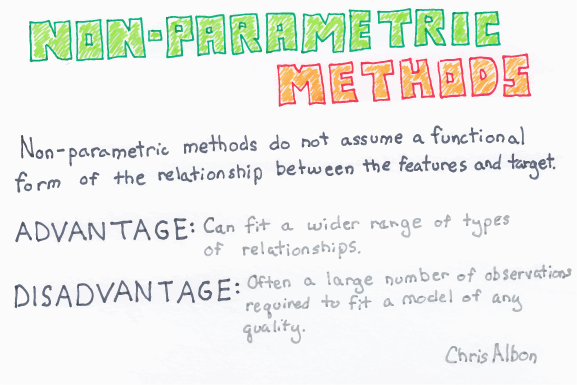 NON-PARAMETRIC
METHODS
Non-parametric methods do not assume a functional
form of the relationship between the features and target.
ADVANTAGE: Can fit a wider range of types
of relationships.
DISADVANTAGE: Often a large number of observations
required to fit a model of any
quality.
Chris Albon